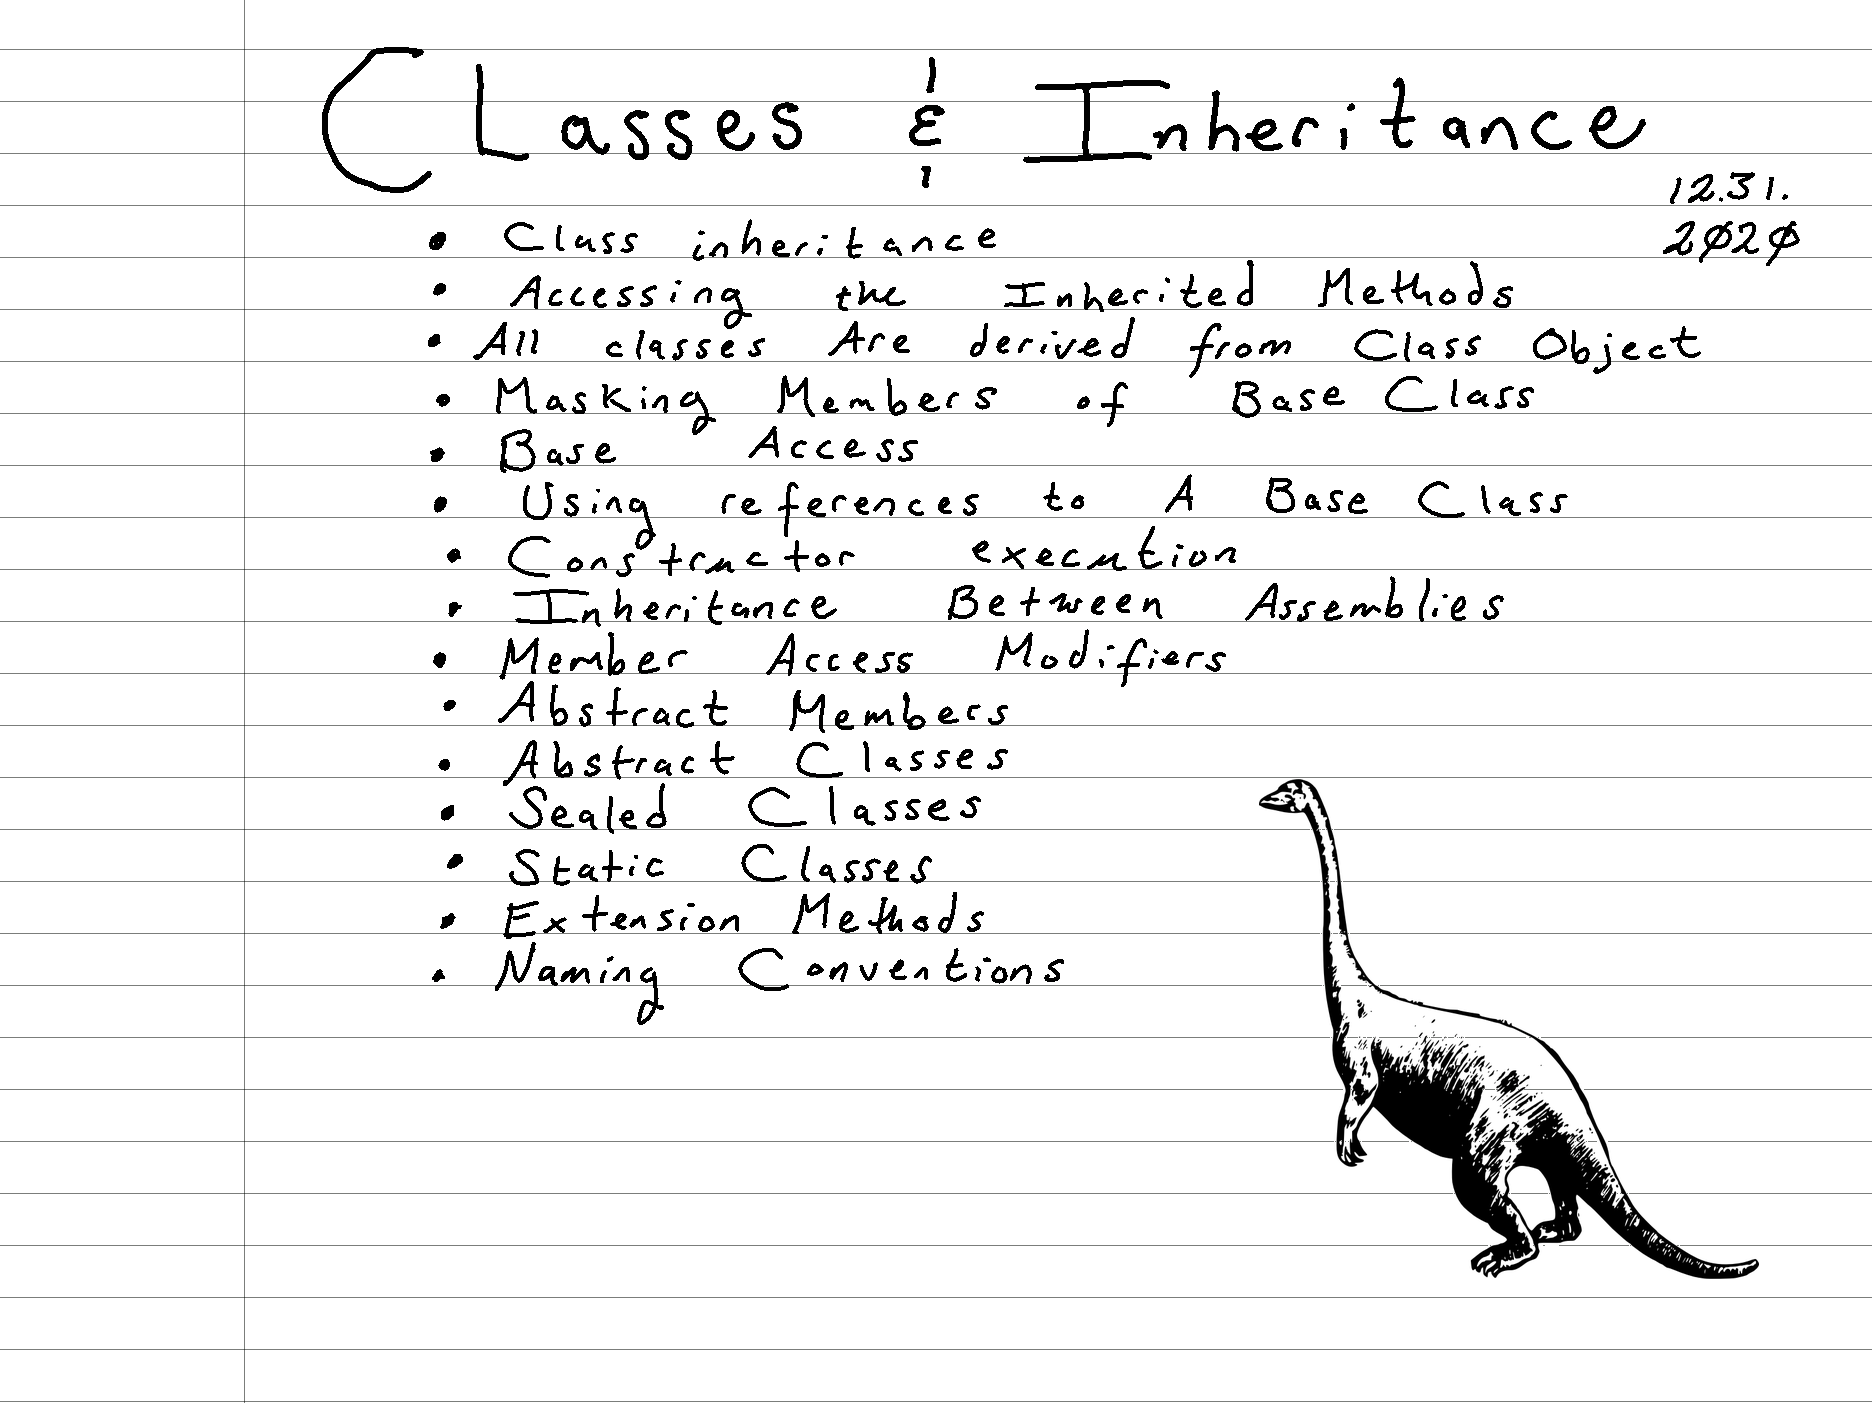 Classes & Inheritance
12.31.
2020
• Class inheritance
• Accessing the Inherited Methods
• All classes Are derived from Class Object
• Masking Members of Base Class
• Base Access
• Using references to A Base Class
• Constructor execution
• Inheritance Between Assemblies
• Member Access Modifiers
• Abstract Members
• Abstract Classes
• Sealed Classes
• Static Classes
• Extension Methods
• Naming Conventions